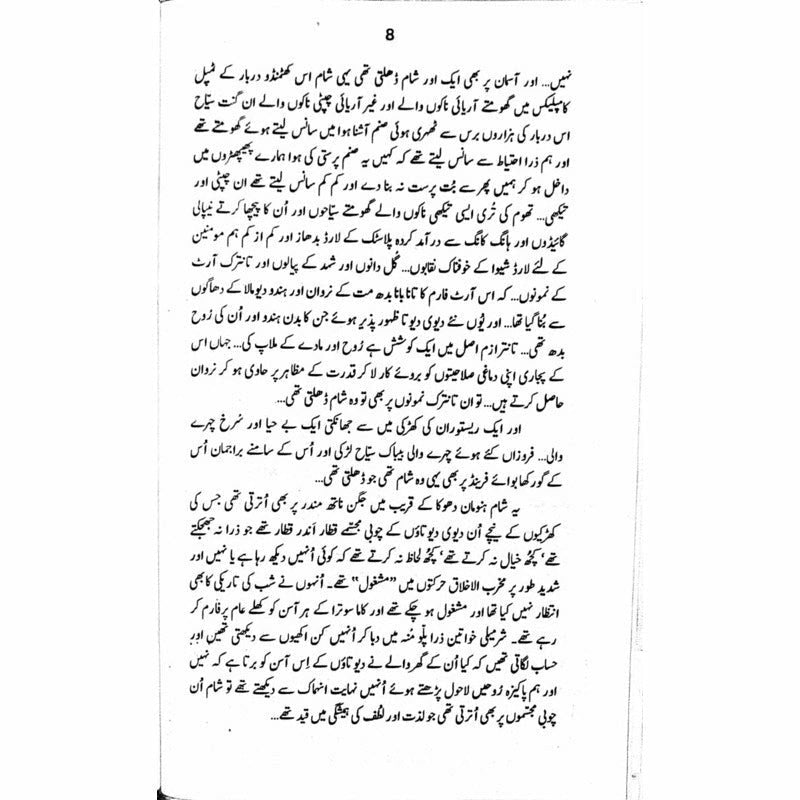 8
نہیں... اور آسمان پر بھی ایک اور شام ڈھلتی تھی یہی شام اس کھٹمنڈو دربار کے ٹمپل
کامپلیکس میں گھومتے آریائی ناکوں والے اور غیر آریائی چپٹی ناکوں والے ان گنت سیّاح
اس دربار کی ہزاروں برس سے ٹھہری ہوئی صنم آشنا ہوا میں سانس لیتے ہوئے گھومتے تھے
اور ہم ذرا احتیاط سے سانس لیتے تھے کہ کہیں یہ صنم پرستی کی ہوا ہمارے پھیپھڑوں میں
داخل ہو کر ہمیں پھر سے بُت پرست نہ بنا دے اور کم کم سانس لیتے تھے ان چپٹی اور
تیکھی... تھوم کی تُری ایسی تیکھی ناکوں والے گھومتے سیّاحوں اور اُن کا پیچھا کرتے نیپالی
گائیڈوں اور ہانگ کانگ سے درآمد کردہ پلاسٹک کے لارڈ بدھاز اور کم از کم ہم مومنین
کے لئے لارڈ شیوا کے خوفناک نقابوں... گُل دانوں اور شہد کے پیالوں اور تانترک آرٹ
کے نمونوں... کہ اس آرٹ فارم کا تانا بانا بدھ مت کے نروان اور ہندو دیومالا کے دھاگوں
سے بُنا گیا تھا... اور یُوں نئے دیوی دیوتا ظہور پذیر ہوئے جن کا بدن ہندو اور اُن کی رُوح
بدھ تھی... تانترازم اصل میں ایک کوشش ہے رُوح اور مادے کے ملاپ کی... جہاں اس
کے پجاری اپنی دماغی صلاحیتوں کو بروئے کار لا کر قدرت کے مظاہر پر حاوی ہو کر نروان
حاصل کرتے ہیں... تو ان تانترک نمونوں پر بھی تو وہ شام ڈھلتی تھی...
اور ایک ریستوران کی کھڑکی میں سے جھانکتی ایک بے حیا اور سُرخ چہرے
والی... فروزاں کئے ہوئے چہرے والی بیباک سیّاح لڑکی اور اُس کے سامنے براجمان اُس
کے گورکھا بوائے فرینڈ پر بھی یہی وہ شام تھی جو ڈھلتی تھی...
یہ شام ہنومان دھوکا کے قریب میں جگن ناتھ مندر پر بھی اُترتی تھی جس کی
کھڑکیوں کے نیچے اُن دیوی دیوتاؤں کے چوبی مجسّمے قطار اندر قطار تھے جو ذرا نہ جھجکتے
تھے‘ کچُھ خیال نہ کرتے تھے‘ کچُھ لحاظ نہ کرتے تھے کہ کوئی اُنہیں دیکھ رہا ہے یا نہیں اور
شدید طور پر مخرب الاخلاق حرکتوں میں ”مشغول“ تھے۔ اُنہوں نے شب کی تاریکی کا بھی
انتظار نہیں کیا تھا اور مشغول ہو چکے تھے اور کاما سوترا کے ہر آسن کو کھلے عام پرفارم کر
رہے تھے۔ شرمیلی خواتین ذرا پلّو مُنہ میں دبا کر اُنہیں کن اکھیوں سے دیکھتی تھیں اور
حساب لگاتی تھیں کہ کیا اُن کے گھر والے نے دیوتاؤں کے اِس آسن کو برتا ہے کہ نہیں
اور ہم پاکیزہ رُوحیں لاحول پڑھتے ہوئے اُنہیں نہایت انہماک سے دیکھتے تھے تو شام اُن
چوبی مجسّموں پر بھی اُترتی تھی جو لذت اور لُطف کی ہمیشگی میں قید تھے...